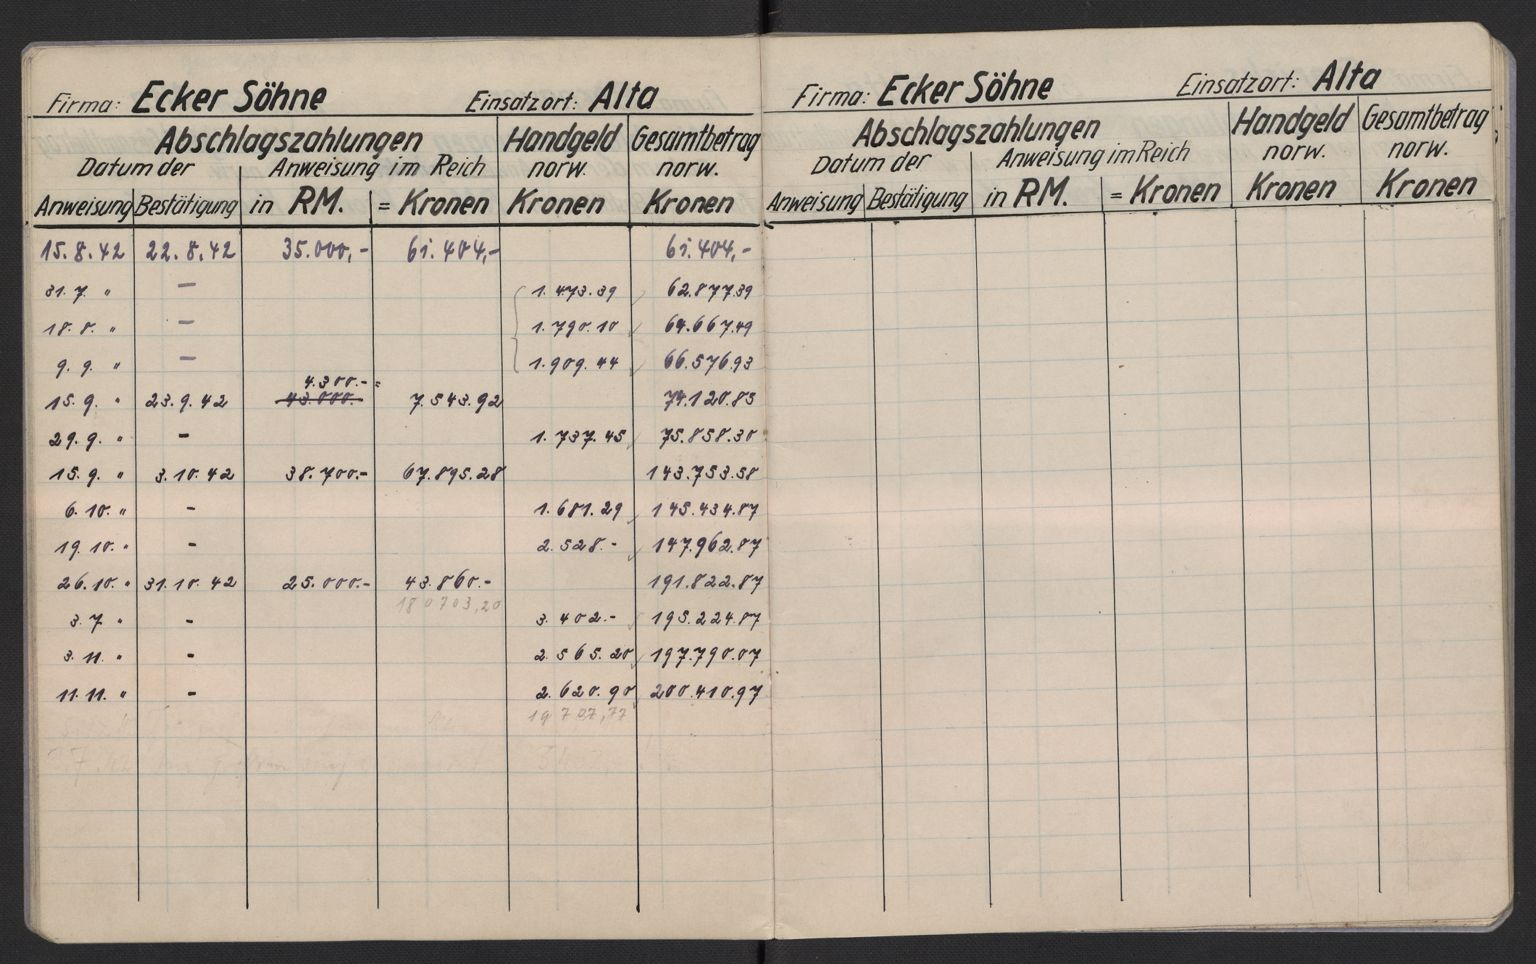 Firma: Ecker Söhne Einsatzort: Alta
Abschlagszahlungen Handgeld Gesamtbetrag
Datum der Anweisung im Reich norw. norw.
Anweisung Bestätigung in RM. = Kronen Kronen Kronen
15.8.42 22.8.42 35.000,- 61.404,- 61.404,-
31.7. " - 1.473.39 62.877.39
18.8. " - 1.790.10 64.667.49
9.9. " - 1.909.44 66.576.93
4.300.-=
15.9. " 23.9.42 43.000.- 7.543.92 74.120.85
29.9. " - 1.737.45 75.858.30
15.9. " 3.10.42 38.700.- 67.895.28 143.753.58
6.10. " - 1.681.29 145.434.87
19.10. " - 2.528.- 147.962.87
26.10. " 31.10.42 25.000.- 43.860.- 191.822.87
180703,20
3.7 " - 3.402.- 195.224.87
3.11. " - 2.565.20 197.790.07
11.11. " - 2.620.90 200.410.97
19707,77
Firma: Ecker Söhne Einsatzort: Alta
Abschlagszahlungen Handgeld Gesamtbetrag
Datum der Anweisung im Reich norw. norw.
Anweisung Bestätigung in RM. = Kronen Kronen Kronen